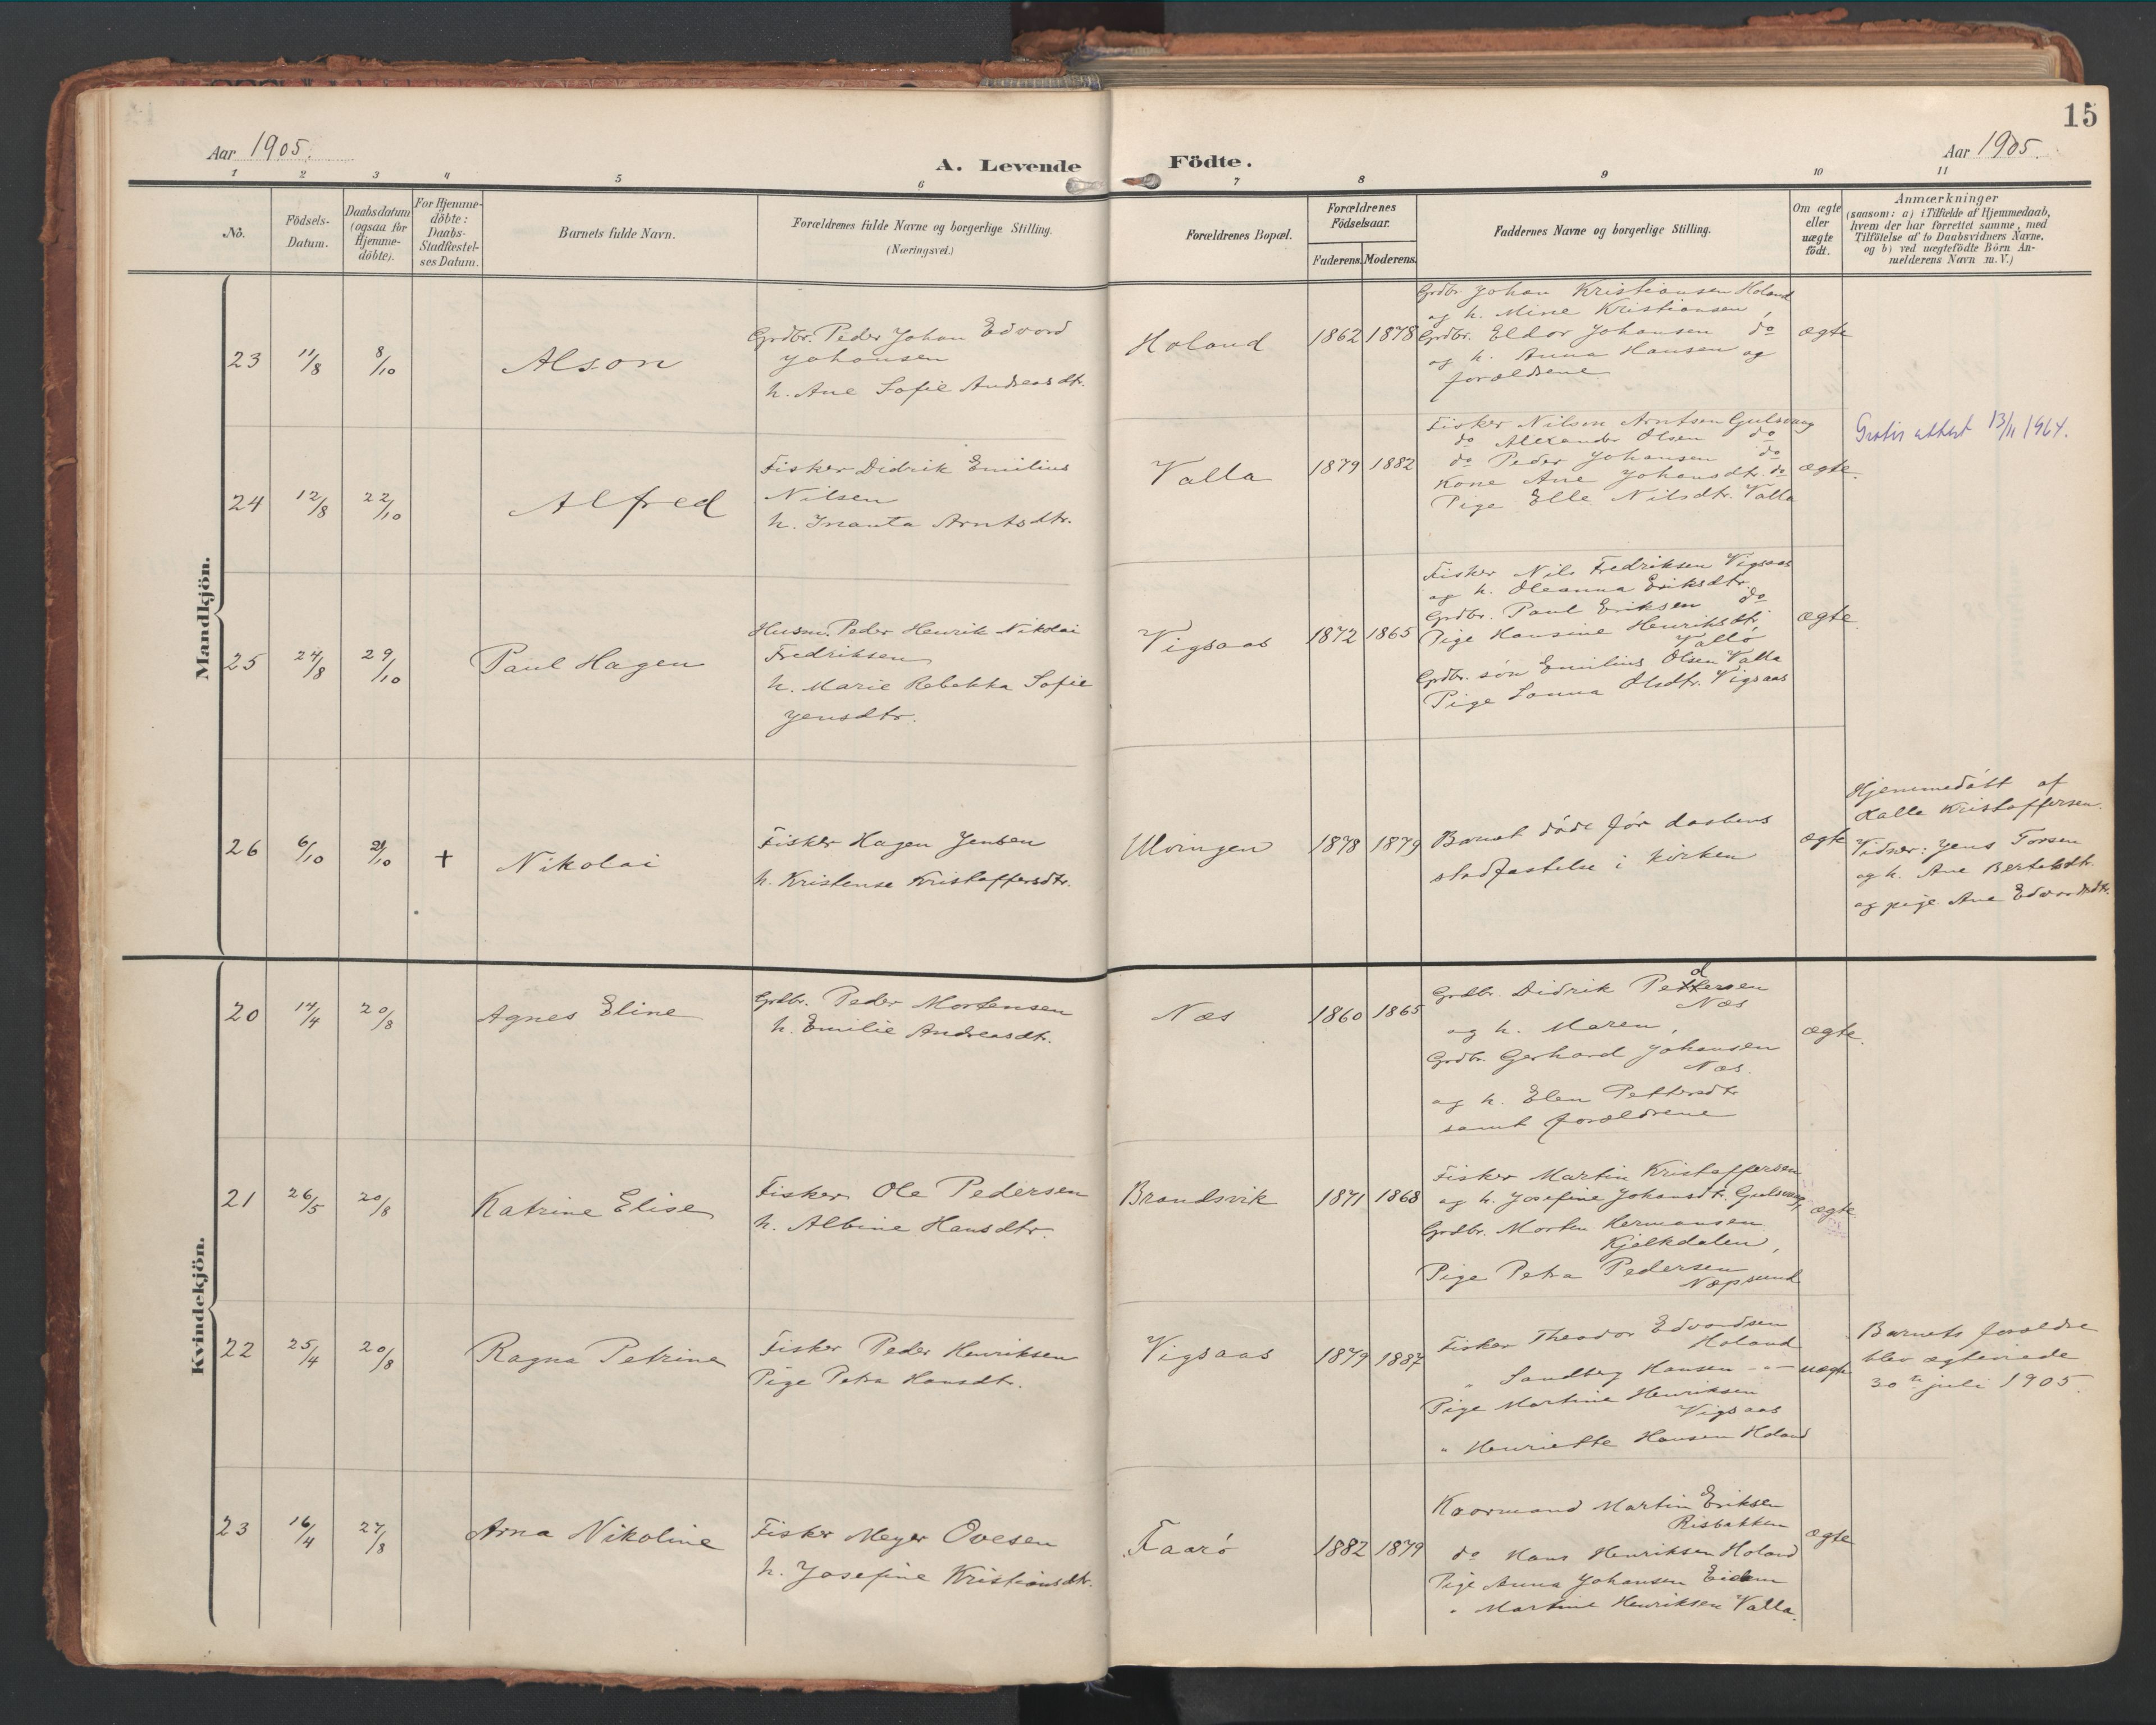 15
Aar 1905.
A. Levende Födte.
Aar 1905.
1 2 3 4 5 6 7 8 9 10 11
No.
Födsels-
Datum.
Daabsdatum
(ogsaa for
Hjemme-
döbte).
For Hjemme-
döbte:
Daabs-
Stadfæstel-
ses Datum.
Barnets fulde Navn.
Forældrenes fulde Navne og borgerlige Stilling.
(Næringsvei.)
Forældrenes Bopæl.
Forældrenes
Födselsaar.
Faderens. Moderens.
Faddernes Navne og borgerlige Stilling.
Om ægte
eller
uægte
födt.
Anmærkninger
(saasom: a) i Tilfælde af Hjemmedaab,
hvem der har forrettet samme, med
Tilföielse af to Daabsvidners Navne,
og b) ved uægtefödte Börn An-
melderens Navn m. V.)
Mandkjön.
23 11/8 8/10 Alson
Grdbr. Peder Johan Edvard
Johansen
h. Ane Sofie Andreasdtr.
Holand 1862 1878
Grdbr. Johan Kristiansen Holand
og h. Mine Kristiansen,
Grdbr. Eldor Johansen do
og h. Anna Hansen og
forældrene
ægte
24 12/8 22/10 Alfred
Fisker Didrik Emilius
Nilsen
h. Inanta Arntsdtr.
Valla 1879 1882
Fisker Nilson Arntsen Gulsvaag
do Alexander Olsen do
do Peder Johansen do
Kone Ane Johansdtr. do
Pige Elle Nilsdtr. Valla
ægte.
Gratis attest 13/11 1964.
25 24/8 29/10 Paul Hagen
Husm. Peder Henrik Nikolai
Fredriksen
h. Marie Rebekka Sofie
Jensdtr.
Vigsaas 1872 1865
Fisker Nils Fredriksen Vigsaas
og h. Oleanna Eriksdtr.
Grdbr. Paul Eriksen do
Pige Hansine Henriksdtr.
Vallö
Grdbr. søn Emilius Olsen Valla
Pige Lanna Olsdtr. Vigsaas
ægte.
26 6/10 21/10 + Nikolai
Fisker Hagen Jensen
h. Kristense Kristoffersdtr.
Ulvingen 1878 1879
Barnet døde før daabens
stadfæstelse i kirken
ægte
Hjemmedøbt af
Kalle Kristoffersen.
Vidner: Jens Torsen
og h. Ane Bertelsdtr.
og pige Ane Edvardsdtr.
Kvindekjön.
20 14/4 20/8 Agnes Eline
Grdbr. Peder Mortensen
h. Emilie Andreasdtr.
Næs 1860 1865
Grdbr. Didrik Pedersen
Næs
og h. Maren,
Grdbr. Gerhard Johansen
Næs.
og h. Elen Pettersdtr
samt forældrene
ægte.
21 26/5 20/8 Katrine Elise
Fisker Ole Pedersen
h. Albine Hansdtr.
Brandsvik 1871 1868
Fisker Martin Kristoffersen
og h. Josefine Johansdtr. Gulsvaag,
Grdbr. Morten Hermansen
Kjelkdalen,
Pige Petra Pedersen
Næpsund
ægte.
22 25/4 20/8 Ragna Petrine
Fisker Peder Henriksen
Pige Petra Hansdtr.
Vigsaas 1879 1887
Fisker Theodor Edvardsen
Holand
" Sandberg Hansen -"-
Pige Martine Henriksen
Vigsaas
" Henriette Hansen Holand
uægte
Barnets forældre
blev ægteviede
30te juli 1905.
23 16/4 27/8 Arna Nikoline
Fisker Meyer Ovesen
h. Josefine Kristiansdtr.
Faarö 1882 1879
Kaarmand Martin Eriksen
Risbakken
do Hans Henriksen Holand
Pige Anna Johansen Eidem
" Martine Henriksen Valla.
ægte